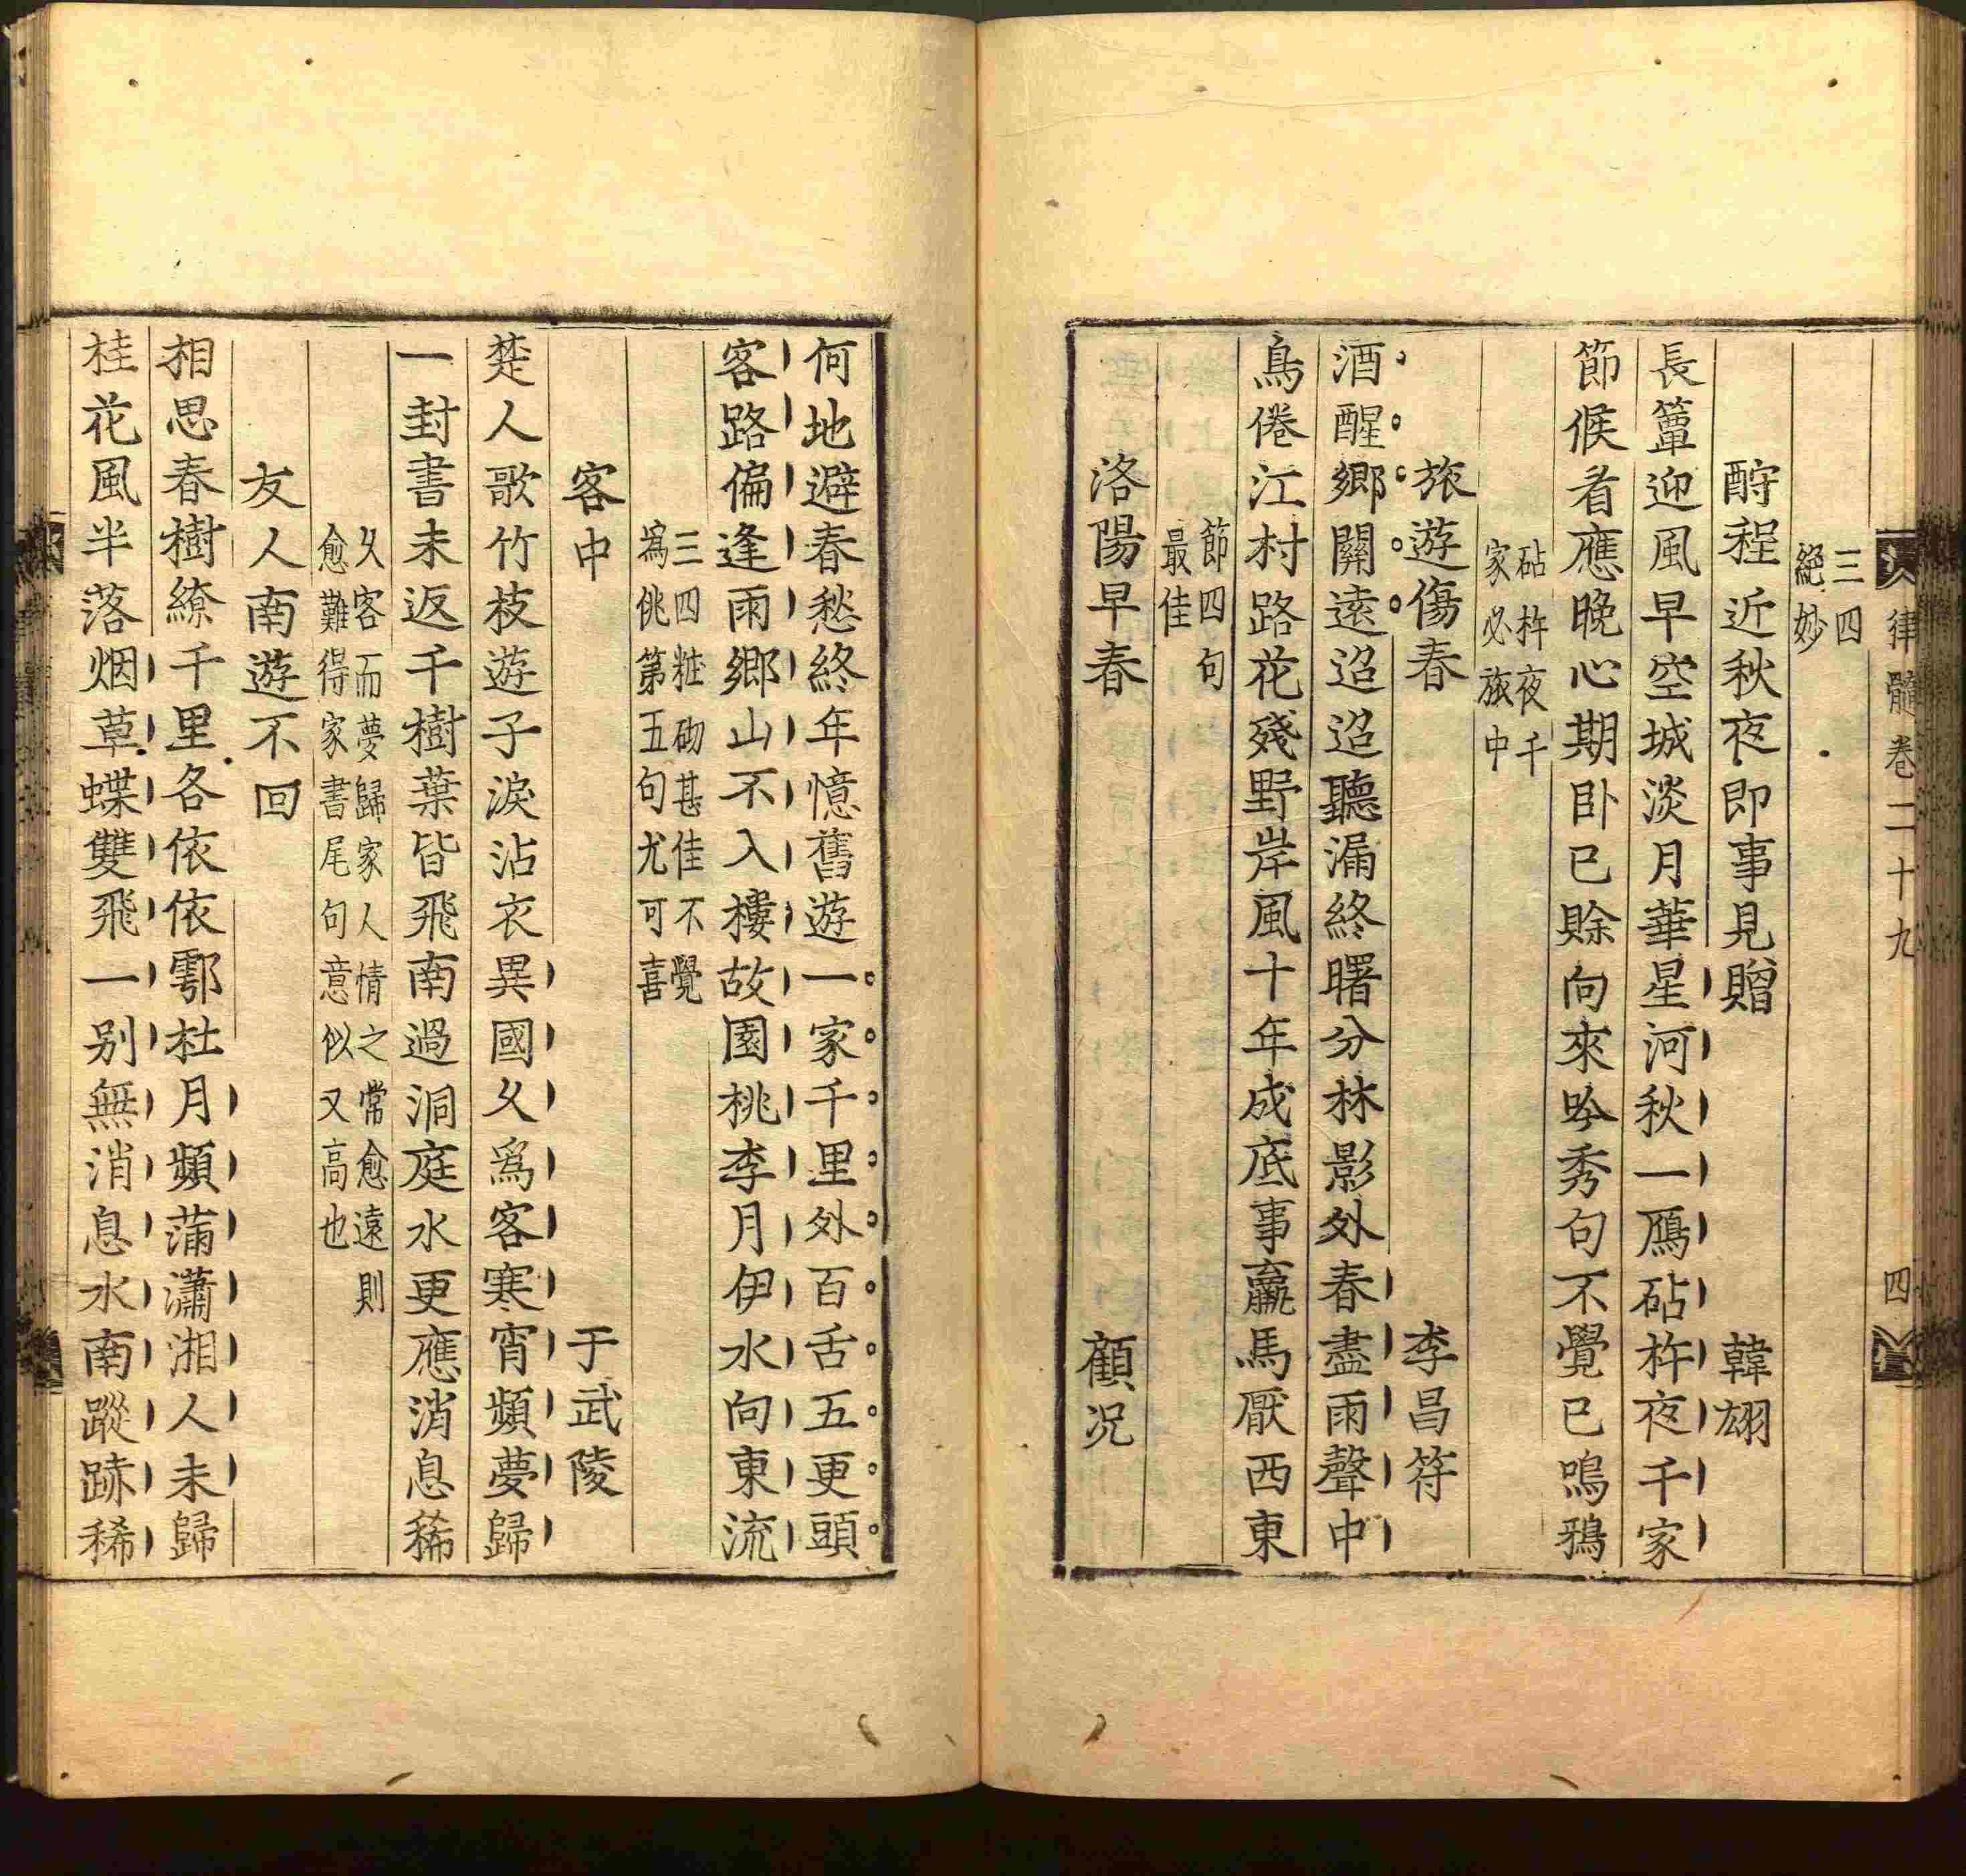 律髓卷二十九 四
三四
絕妙
酧程近秋夜即事見贈 韓翃
長簟迎風早空城淡月華星河秋一鴈砧杵夜千家
節候看應晚心期卧已賖向來吟秀句不覺已鳴鴉
砧杵夜千
家必旅中
旅遊傷春 李昌符
酒醒鄉關遠迢迢聽漏終曙分林影外春盡雨聲中
鳥倦江村路花殘野岸風十年成底事羸馬厭西東
節四句
最佳
洛陽早春 顧况
何地避春愁終年憶舊遊一家千里外百舌五更頭
客路偏逢雨鄉山不入樓故園桃李月伊水向東流
三四粧砌甚佳不覺
爲佻第五句尤可喜
客中 于武陵
楚人歌竹枝遊子淚沾衣異國久爲客寒宵頻夢歸
一封書未返千樹葉皆飛南過洞庭水更應消息稀
久客而夢歸家人情之常愈遠則
愈難得家書尾句意似又高也
友人南遊不回
相思春樹繚千里各依依鄠杜月頻蒲瀟湘人未歸
桂花風半落烟草蝶雙飛一别無消息水南蹤跡稀